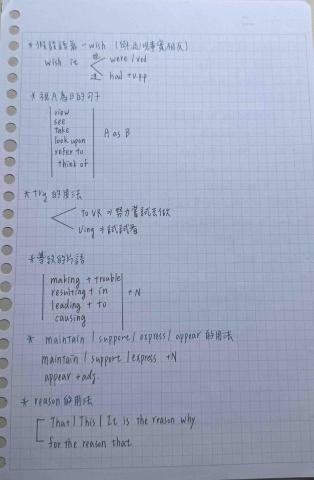 * 假設語氣 - wish (與過/現事實相反)
wish it 現 were / Ved
過 had + Vpp
* 視A為B的句子
view
see
take
look upon
refer to
think of
A as B
* try 的用法
to VR ⇒ 努力嘗試去做
Ving ⇒ 試試看
* 導致的片語
making + trouble
resulting + in
leading + to
causing
+ N
* maintain / support / express / appear 的用法
maintain / support / express + N
appear + adj.
* reason 的用法
That / This / It is the reason why
for the reason that